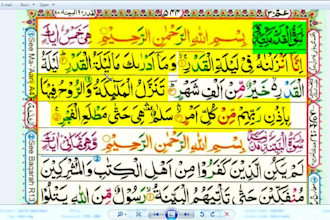 بِسْمِ اللّٰهِ الرَّحْمٰنِ الرَّحِيْمِ
اِنَّا اَنْزَلْنٰهُ فِيْ لَيْلَةِ الْقَدْرِ وَمَا اَدْرٰىكَ مَا لَيْلَةُ الْقَدْرِ لَيْلَةُ
الْقَدْرِ خَيْرٌ مِّنْ اَلْفِ شَهْرٍ تَنَزَّلُ الْمَلٰٓئِكَةُ وَالرُّوْحُ فِيْهَا
بِاِذْنِ رَبِّهِمْ مِّنْ كُلِّ اَمْرٍ سَلٰمٌ هِيَ حَتّٰى مَطْلَعِ الْفَجْرِ
بِسْمِ اللّٰهِ الرَّحْمٰنِ الرَّحِيْمِ
لَمْ يَكُنِ الَّذِيْنَ كَفَرُوْا مِنْ اَهْلِ الْكِتٰبِ وَالْمُشْرِكِيْنَ
مُنْفَكِّيْنَ حَتّٰى تَأْتِيَهُمُ الْبَيِّنَةُ رَسُوْلٌ مِّنَ اللّٰهِ يَتْلُوْا